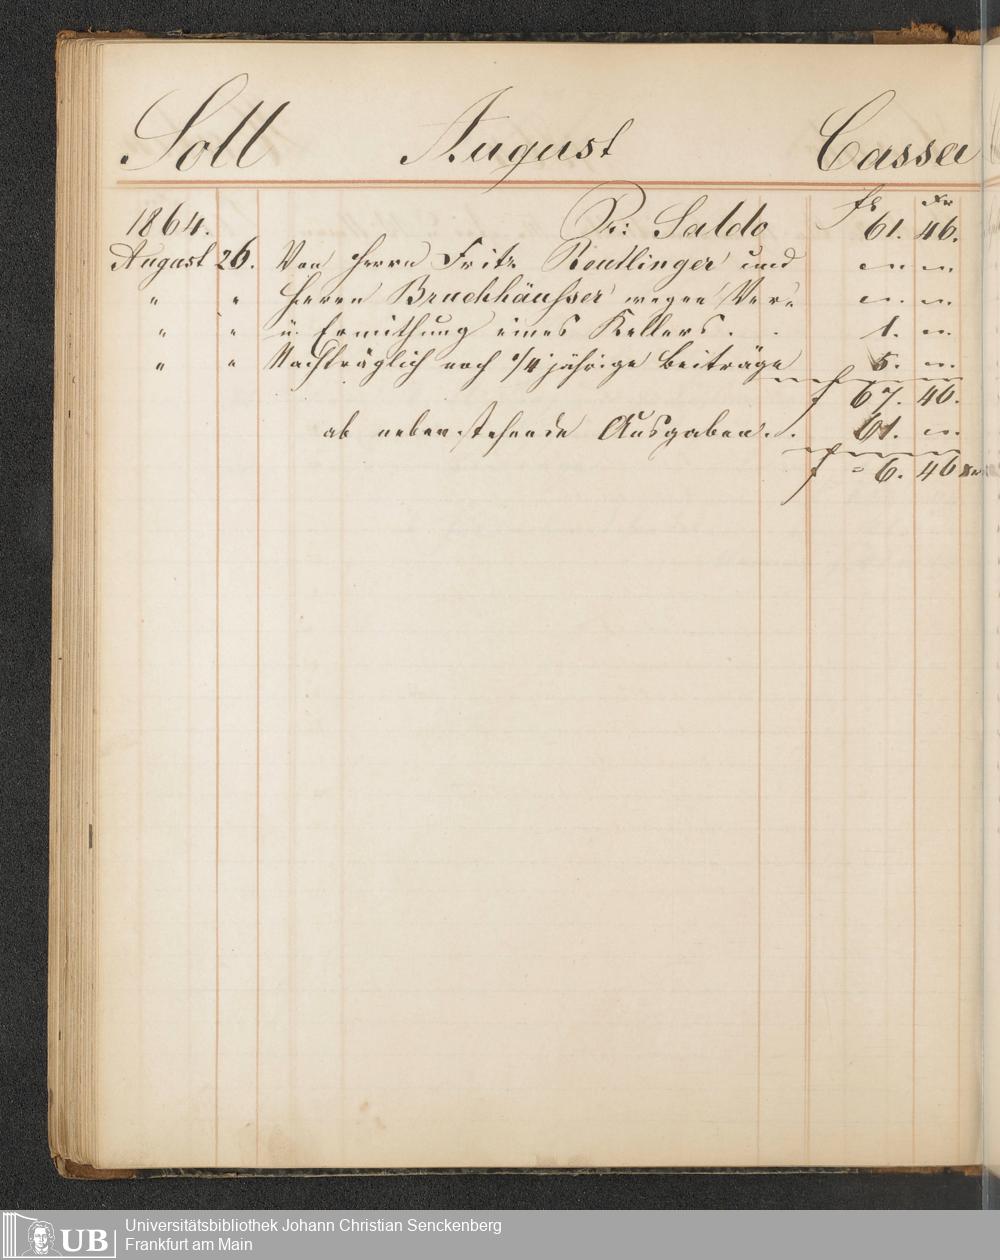 Soll August Cassa
1864. Pr: Saldo fl Kr 61. 46.
August 26. Von Herrn Fritz Reutlinger und " "
" " Herrn Bruchhäußer wegen Ver= " "
" " u. Ermithung eines Kellers . . 1. "
" " Nachträglich noch 1/4 jährige Beiträge 5. "
f 67. 46.
ab nebenstehende Ausgaben. . 61. "
f = 6. 46 Kr
UB Universitätsbibliothek Johann Christian Senckenberg
Frankfurt am Main